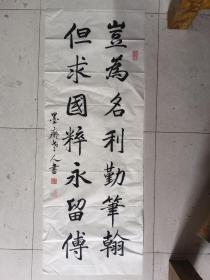 豈為名利勤筆翰
但求國粹永留傳
墨齋老人書